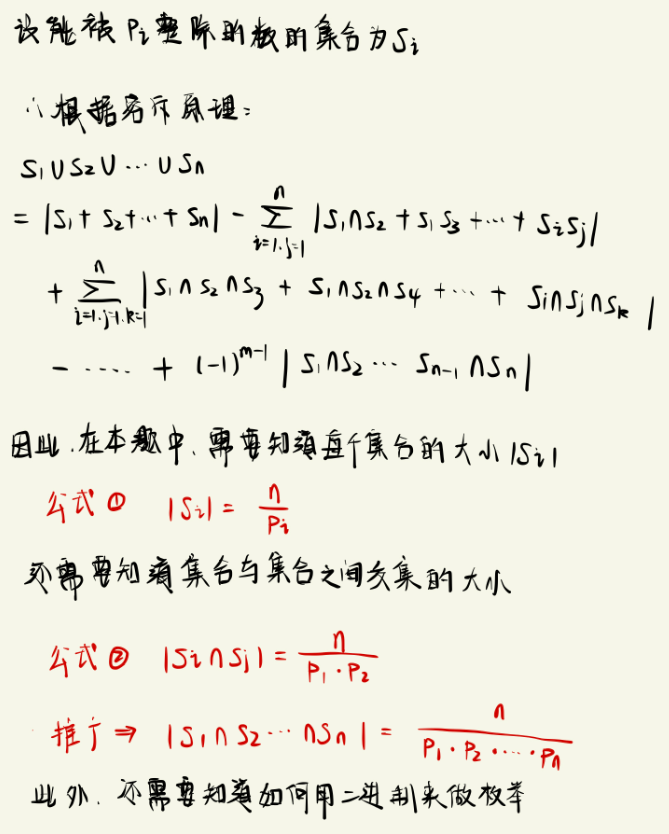 设能被 Pi 整除的数的集合为 Si
∴ 根据容斥原理:
S1 ∪ S2 ∪ ··· ∪ Sn
= |S1 + S2 + ··· + Sn| - ∑_{i=1.j=1}^{n} |S1∩S2 + S1S3 + ··· + SiSj|
+ ∑_{i=1.j=1.k=1}^{n} |S1∩S2∩S3 + S1∩S2∩S4 + ··· + Si∩Sj∩Sk|
- ····· + (-1)^{m-1} |S1∩S2 ··· Sn-1∩Sn|
因此.在本题中、需要知道每个集合的大小 |Si|
公式① |Si| = n/Pi
还需要知道集合与集合之间交集的大小
公式② |Si∩Sj| = n/(P1·P2)
推广 ⇒ |S1∩S2 ··· ∩Sn| = n/(P1·P2·····Pn)
此外.还需要知道如何用二进制来做枚举